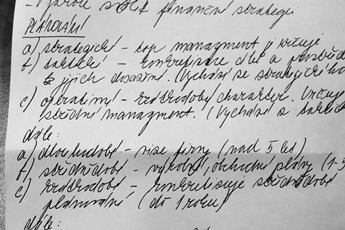 - vytvořit finanční strategii
PLÁNOVÁNÍ
a) strategické - top managment ji určuje
b) taktické - konkretizuje cíle a prostředky
k jejich dosažení. (Vychází ze strategického
c) operativní - krátkodobý charakter. Určuje
střední managment. (Vychází z taktick
dále:
a) dlouhodobé - vize firmy (nad 5 let)
b) střednědobé - výrobní, obchodní plány (1-5
c) krátkodobé - konkretizuje střednědobé
plánování, (do 1 roku)
dále: